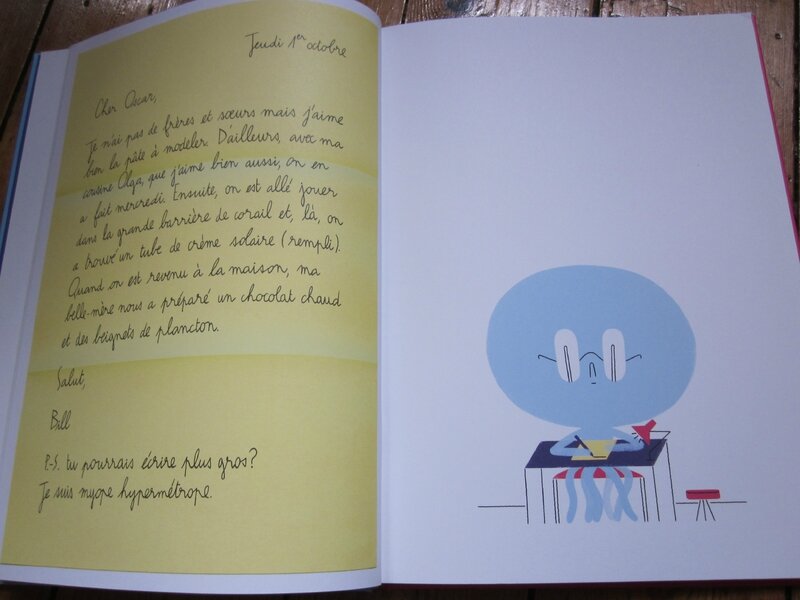 Jeudi 1er octobre
Cher Oscar,
Je n'ai pas de frères et sœurs mais j'aime
bien la pâte à modeler. D'ailleurs, avec ma
cousine Olga, que j'aime bien aussi, on en
a fait mercredi. Ensuite, on est allé jouer
dans la grande barrière de corail et, là, on
a trouvé un tube de crème solaire (rempli).
Quand on est revenu à la maison, ma
belle-mère nous a préparé un chocolat chaud
et des beignets de plancton.
Salut,
Bill
P.-S. tu pourrais écrire plus gros?
Je suis myope hypermétrope.